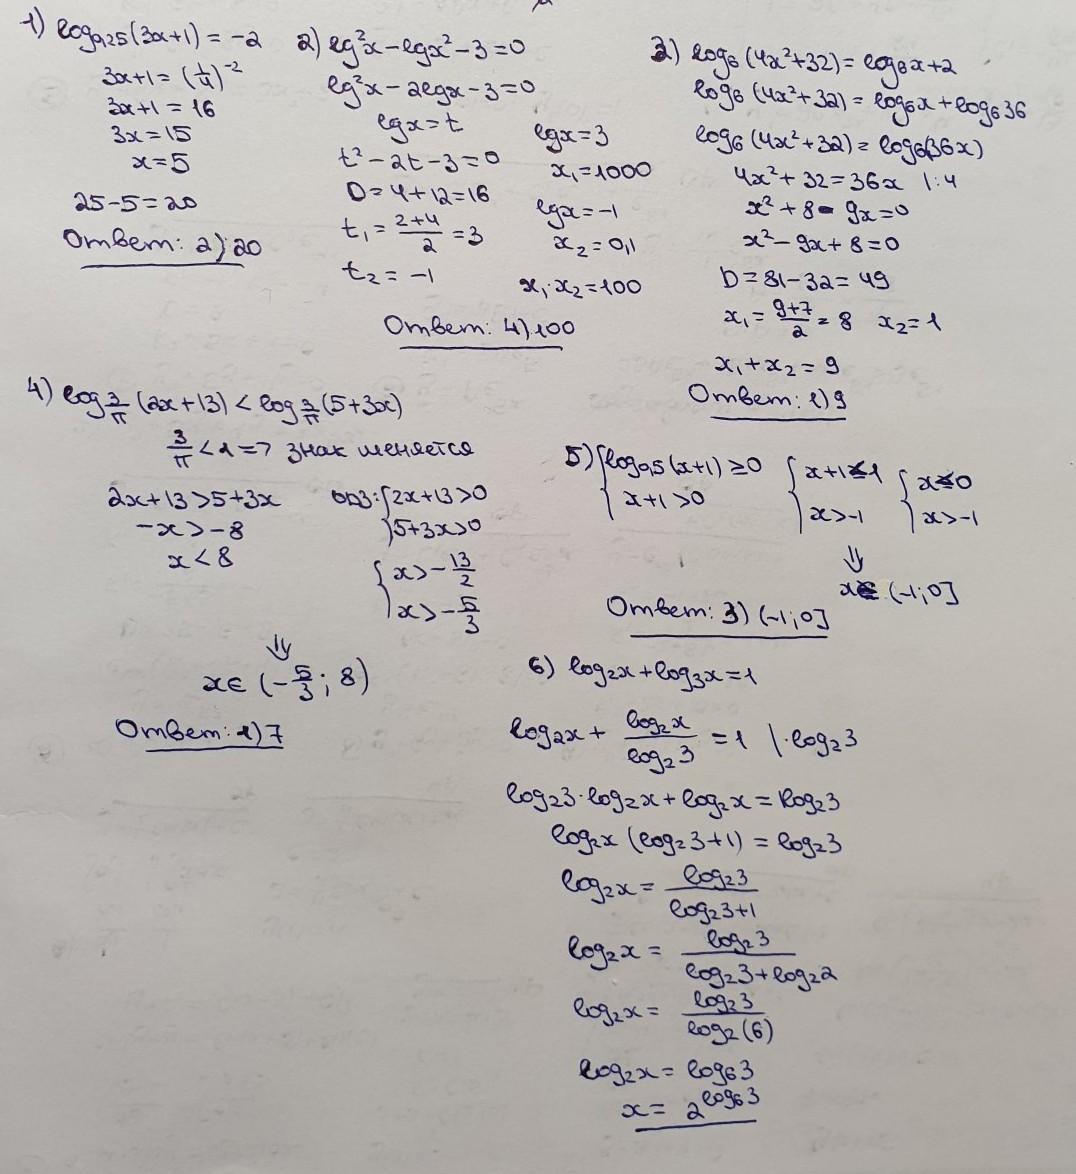 1) log₀,₂₅(3x+1) = -2
3x+1 = (1/4)⁻²
3x+1 = 16
3x = 15
x = 5
25-5 = 20
Ответ: 2) 20
2) lg²x - lgx² - 3 = 0
lg²x - 2lgx - 3 = 0
lgx = t
t² - 2t - 3 = 0
D = 4+12 = 16
t₁ = (2+4)/2 = 3
t₂ = -1
lgx = 3
x₁ = 1000
lgx = -1
x₂ = 0,1
x₁·x₂ = 100
Ответ: 4) 100
3) log₆(4x²+32) = log₆x+2
log₆(4x²+32) = log₆x + log₆36
log₆(4x²+32) = log₆(36x)
4x²+32 = 36x |:4
x²+8-9x=0
x²-9x+8=0
D = 81-32 = 49
x₁ = (9+7)/2 = 8 x₂ = 1
x₁+x₂ = 9
Ответ: 1) 9
4) log_{3/π}(2x+13) < log_{3/π}(5+3x)
3/π < 1 => знак меняется
2x+13 > 5+3x
-x > -8
x < 8
ОДЗ: { 2x+13 > 0
5+3x > 0
{ x > -13/2
x > -5/3
⇓
x ∈ (-5/3; 8)
Ответ: 1) 7
5) { log₀,₅(x+1) ≥ 0
x+1 > 0
{ x+1 ≤ 1
x > -1
{ x ≤ 0
x > -1
⇓
x ∈ (-1; 0]
Ответ: 3) (-1; 0]
6) log₂x + log₃x = 1
log₂x + log₂x/log₂3 = 1 |·log₂3
log₂3·log₂x + log₂x = log₂3
log₂x (log₂3+1) = log₂3
log₂x = log₂3/(log₂3+1)
log₂x = log₂3/(log₂3+log₂2)
log₂x = log₂3/log₂(6)
log₂x = log₆3
x = 2^{log₆3}